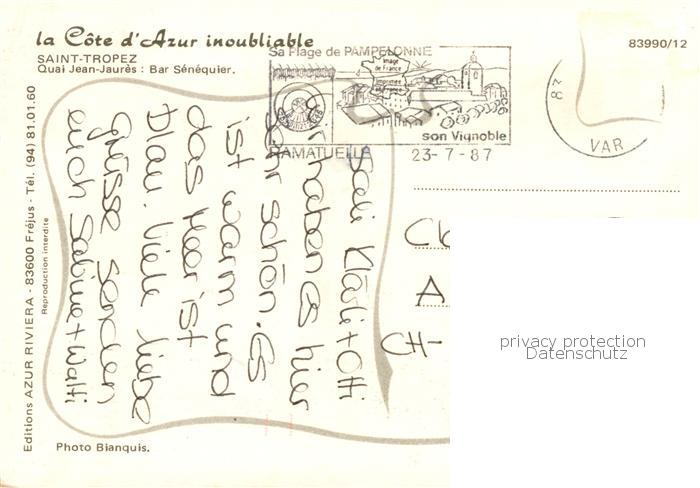 la Côte d'Azur inoubliable
SAINT-TROPEZ
Quai Jean-Jaurès : Bar Sénéquier.
83990/12
Sa Plage de PAMPELONNE
Image
de France
son Vignoble
RAMATUELLE 23-7-87
83
VAR
Sali Kläsli + Otti
wir haben es hier
sehr schön. Es
ist warm und
das Meer ist
blau. Viele liebe
Grüsse senden
euch Sabine + Walti
CH-
privacy protection
Datenschutz
Editions AZUR RIVIERA - 83600 Fréjus - Tél. (94) 81.01.60
Reproduction interdite
Photo Bianquis.